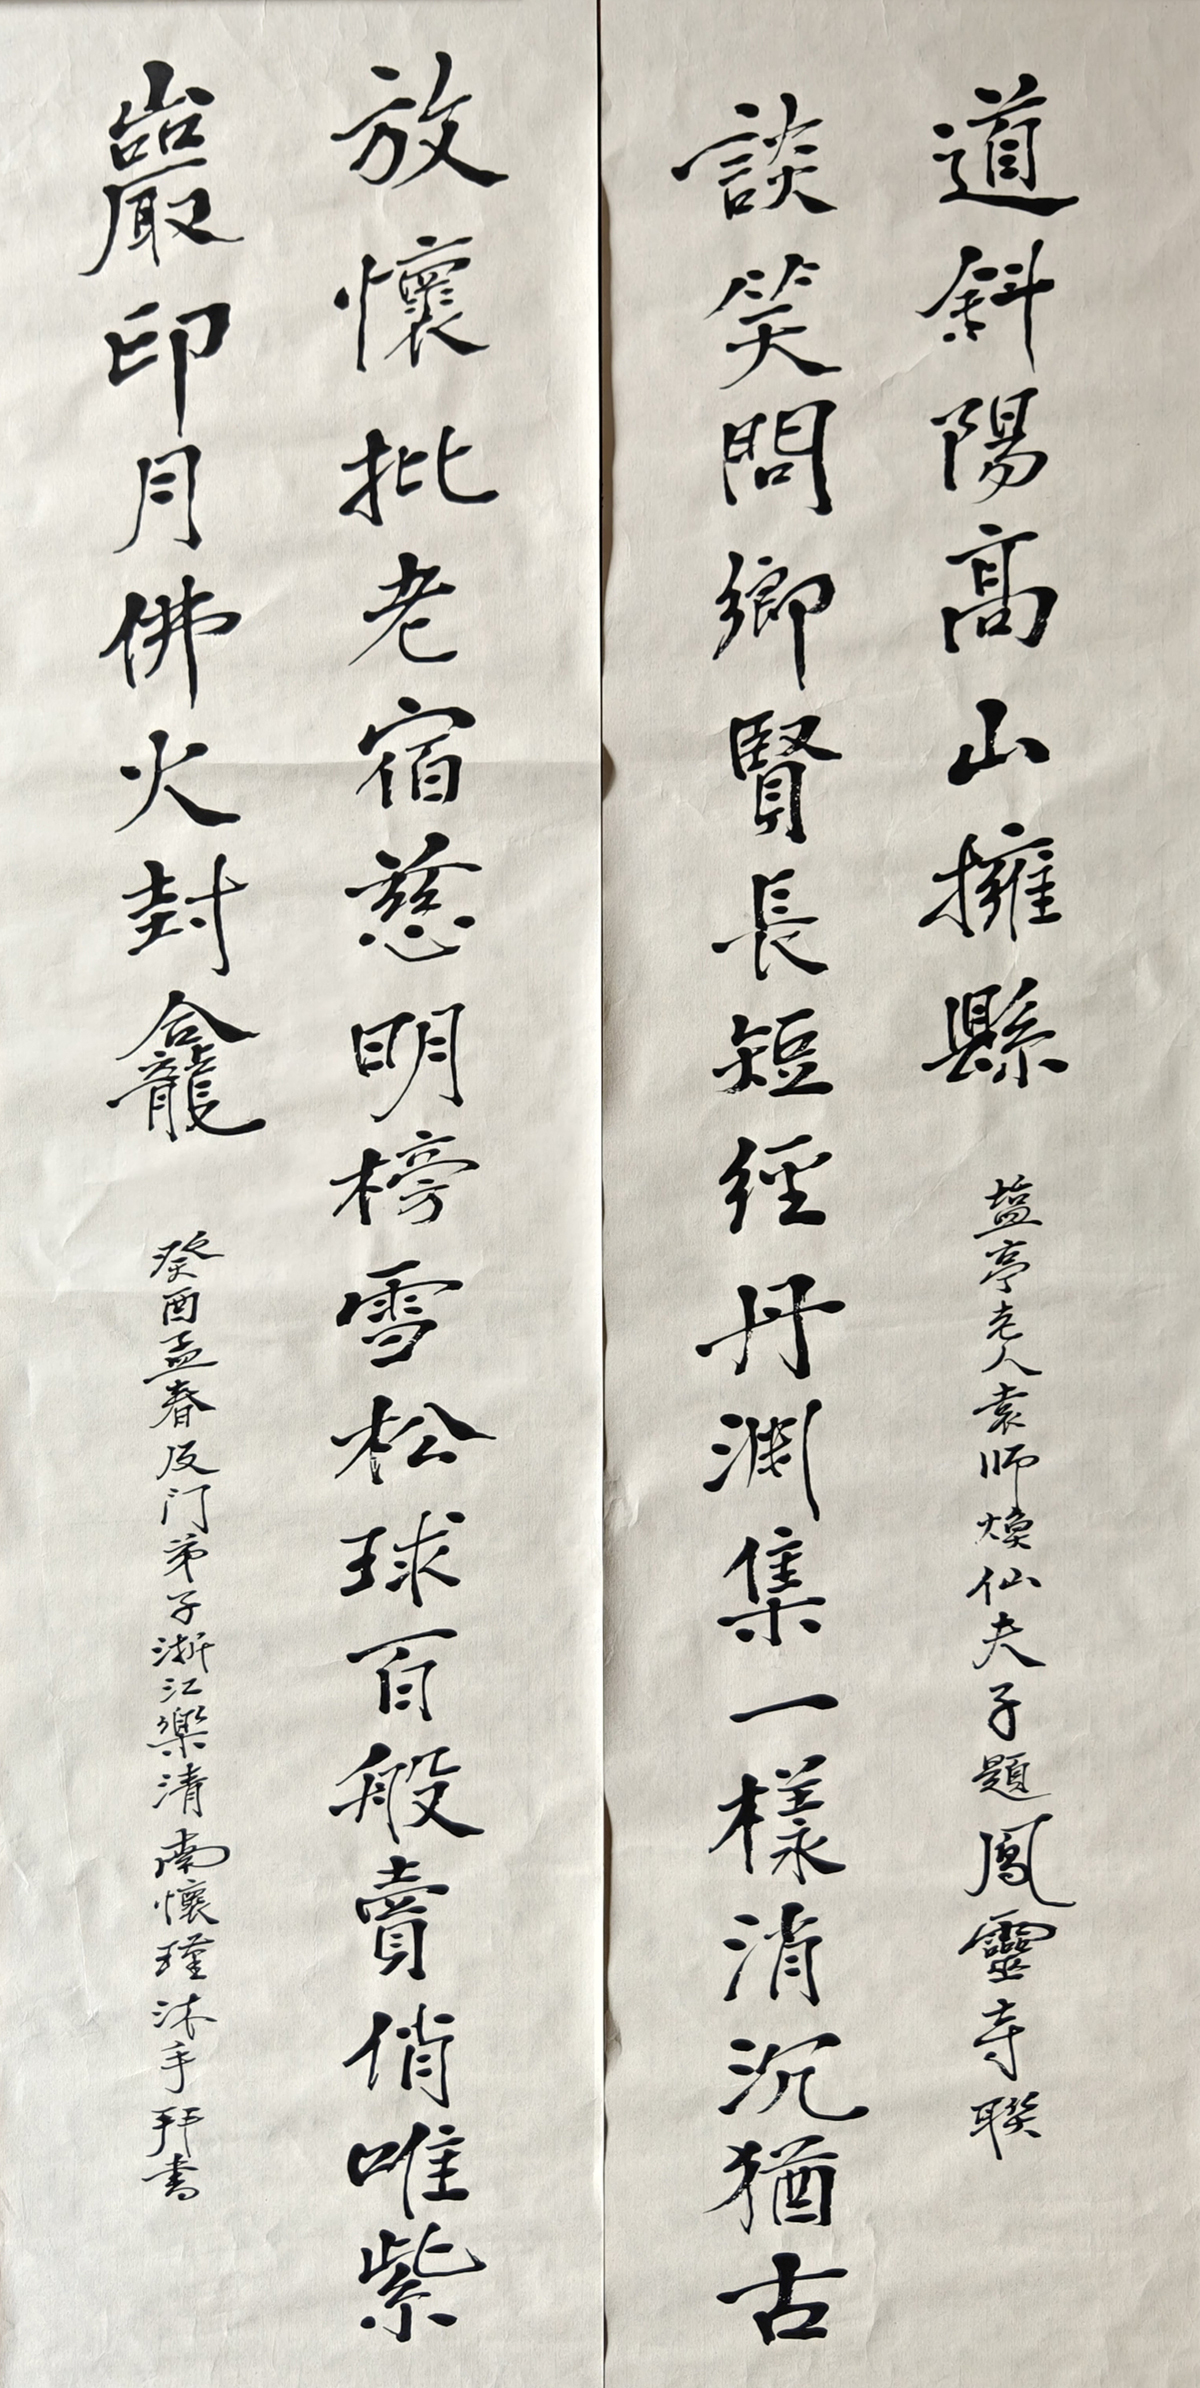 談笑問鄉賢長短經丹淵集一樣消沉猶古
道斜陽髙山擁縣
塩亭老人袁師煥仙夫子題鳳靈寺聯
放懷批老宿慈明榜雪松球百般賣俏唯紫
巖印月佛火封龕
癸酉孟春及门弟子浙江樂清南懷瑾沐手拜書